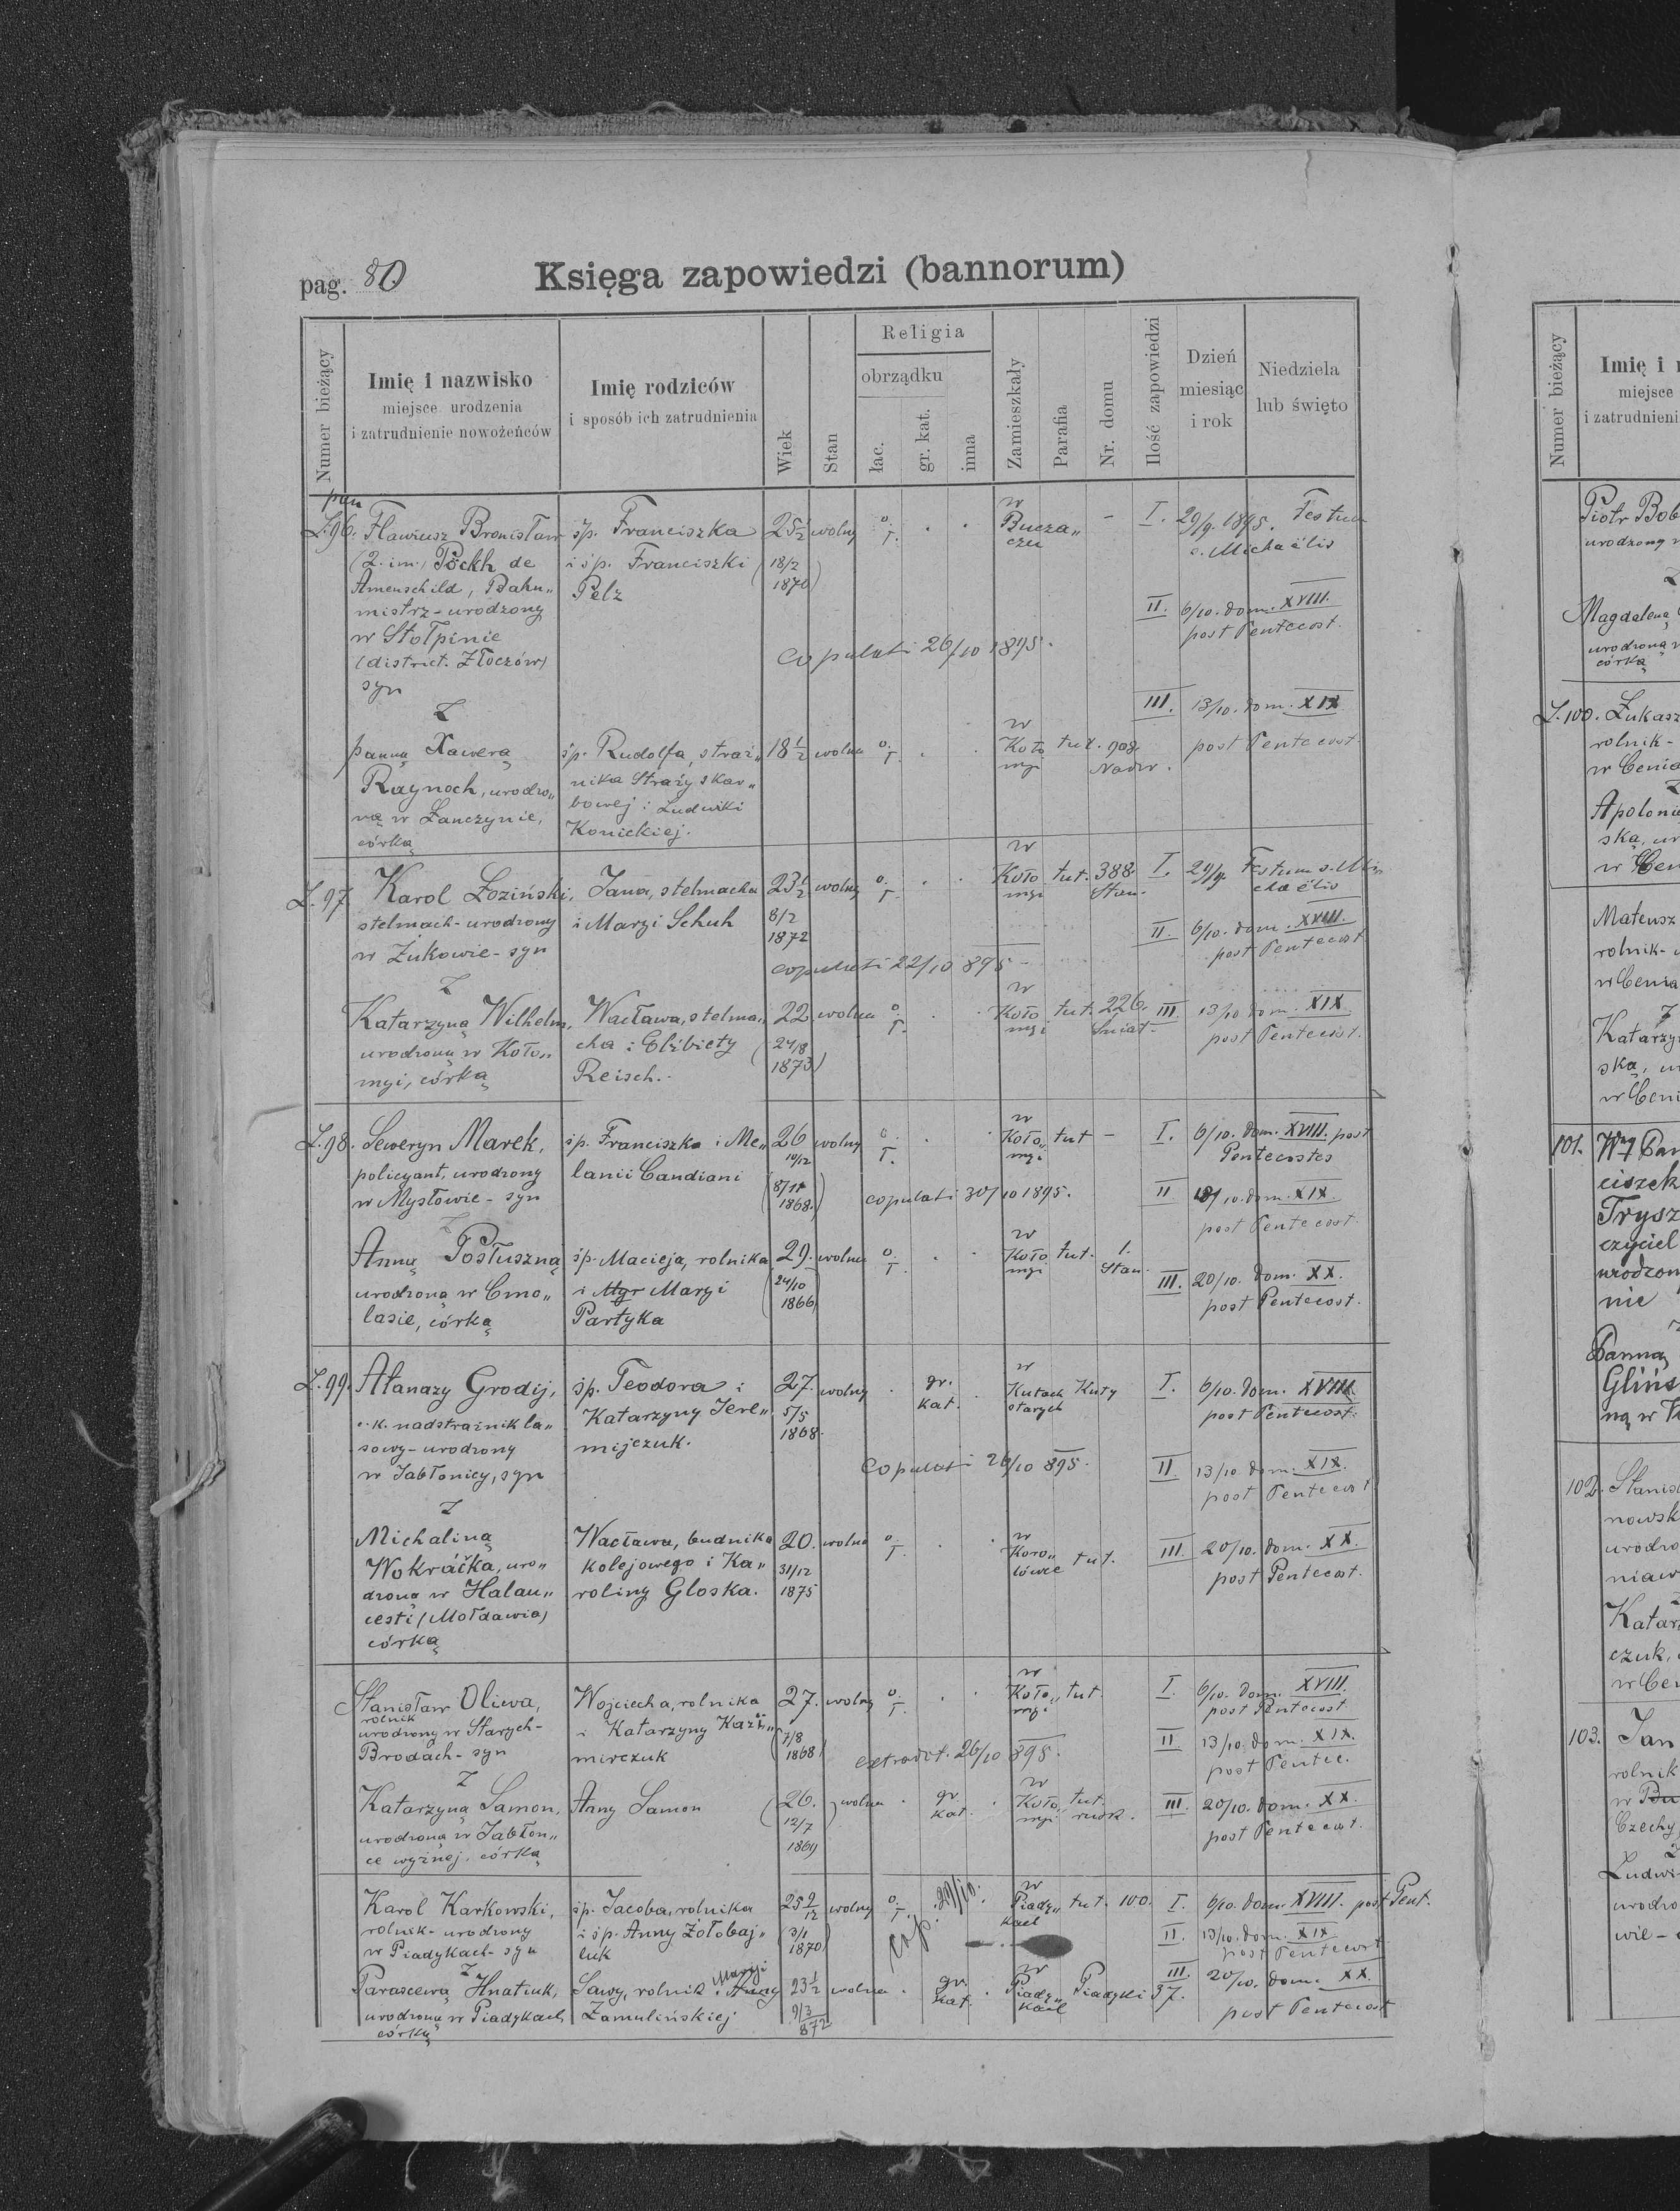 pag. 80
Księga zapowiedzi (bannorum)
Numer bieżący
Imię i nazwisko
miejsce urodzenia
i zatrudnienie nowożeńców
Imię rodziców
i sposób ich zatrudnienia
Wiek
Stan
Religia
obrządku
łac.
gr. kat.
inna
Zamieszkały
Parafia
Nr. domu
Ilość zapowiedzi
Dzień
miesiąc
i rok
Niedziela
lub święto
pan
L.96. Flawiusz Bronisław śp. Franciszka 25½ wolny o. Ł. w Bucza„ - I. 29/9. 1895. Festum
(2. im.) Pöckh de i śp. Franciszki (18/2 czu s. Michaëlis
Amenschild, Bahn„ Pelz 1870)
mistrz - urodzony II. 6/10. dom. XVIII.
w Stołpinie post Pentecost.
(district. Złoczów) copulati 26/10 1895.
syn
z III. 13/10. dom. XIX
panną Xawerą śp. Rudolfa, straż„ 18½ wolna o. Ł. w Koło tut. nad. post Pentecost.
Raynoch, urodzo„ nika Straży skar„ myi Nadw.
ną w Łanczynie, bowej i Ludwiki
córką Konickiej.
L.97 Karol Łoziński, Jana, stelmacha 23½ wolny o. Ł. w Koło tut. 388 I. 29/9. Festum s. Mi
stelmach - urodzony i Maryi Schuh 8/2 myi Stan. chaëlis
w Żukowie - syn 1872 II. 6/10. dom. XVIII.
post Pentecost
copulati 22/10 895 -
z
Katarzyną Wilhelm, Wacława, stelma„ 22 wolna o. Ł. w Koło tut. 226. III. 13/10 dom. XIX.
urodzoną w Koło„ cha i Elżbiety (24/8 myi Śniat. post Pentecost.
myi, córką Reisch. 1873)
L.98. Seweryn Marek, śp. Franciszka i Me„ 26 wolny o. Ł. w Koło„ tut - I. 6/10. dom. XVIII. post
policyant, urodzony lanii Candiani 10/12 myi Pentecostes
w Mysłowie - syn (8/11 1868.) copulati 30/10 1895. II 13/10. dom. XIX.
z post Pentecost.
Anną Posłuszną śp. Macieja, rolnika 29. wolna o. Ł. w Koło tut. 1.
urodzoną w Cmo„ i Mgr Maryi (24/10 myi Stan. III. 20/10. dom. XX.
lasie, córką Partyka 1866) post Pentecost.
L.99. Atanazy Grodij, śp. Teodora i 27. wolny . gr. kat. w Kutach Kuty I. 6/10. dom. XVIII
c. k. nadstrażnik la„ Katarzyny Jere„ 5/5 starych post Pentecost.
sowy - urodzony mijczuk. 1868.
w Jabłonicy, syn copulati 26/10 895. II. 13/10. dom. XIX.
z post Pentecost
Michaliną Wacława, budnika 20. wolna o. Ł. w Koro„ tut. III. 20/10. dom. XX.
Wokráčka, uro„ kolejowego i Ka„ 31/12 lówce post Pentecost.
dzoną w Halau„ roliny Gloska. 1875
cesti (Mołdawia)
córką
Stanisław Oliwa, Wojciecha, rolnika 27. wolny o. Ł. w Koło„ tut. I. 6/10. dom. XVIII.
rolnik i Katarzyny Kazi„ (7/8 myi post Pentecost
urodzony w Starych - mirczuk 1868) II 13/10. dom. XIX.
Brodach - syn extradit. 26/10 895. post Pentec.
z
Katarzyną Samon, Anny Samon (26.) wolna . gr. kat. w Koło„ tut. III. 20/10. dom. XX.
urodzoną w Jabłon„ 12/7 myi rusk. post Pentecost.
ce wyżnej. córką 1869
Karol Karkowski, śp. Jacoba, rolnika 25 9/12 wolny o. Ł. cop. 29/10. w Piady„ tut. 100. I. 6/10. dom. XVIII. post Pent.
rolnik - urodzony i śp. Anny Żołobaj„ (3/1 kach II. 13/10. dom. XIX
w Piadykach - syn luk 1870) post Pentecost
z Maryi III. 20/10. dom. XX.
Parascewą Hnatiuk, Sawy, rolnik i Anny 23½ wolna . gr. kat. w Piady„ Piadyki 37. post Pentecost
urodzoną w Piadykach Zamulińskiej 9/3 kach
córką 872
Numer bieżący
Imię i
miejsce
i zatrudnieni
Piotr Bob
urodzony
Magdaleną
urodzoną
córką
L.100. Łukasz
rolnik -
w Cenia
z
Apolonią
ską, ur
w Cen
Mateusz
rolnik -
w Cenia
z
Katarzy
ską, u
w Ceni
101. Wny Pan
ciszek
Trysz
czyciel
urodzon
nie
z
Panną
Glińs
ną w
102. Stanis
nowsk
urodzo
niaw
Katar
czuk,
w Cen
103. Jan
rolnik
w Bu
Czechy
z
Ludwi
urodzo
wie -